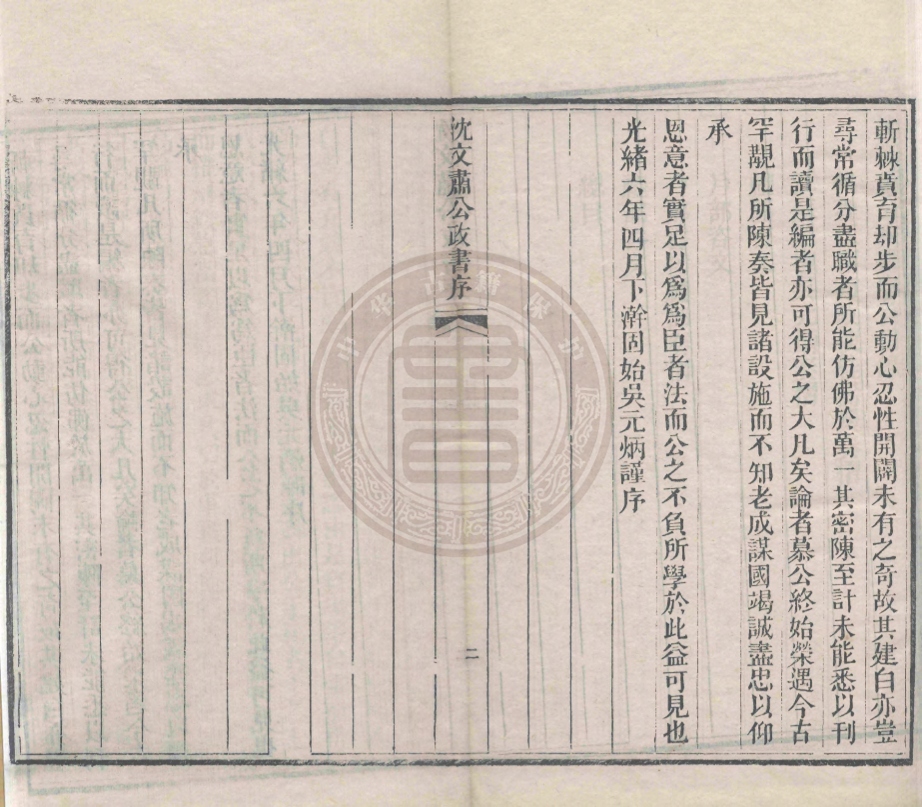 斬棘賁育却步而公動心忍性開闢未有之奇故其建白亦豈
尋常循分盡職者所能仿佛於萬一其密陳至計未能悉以刊
行而讀是編者亦可得公之大凡矣論者慕公終始榮遇今古
罕覯凡所陳奏皆見諸設施而不知老成謀國竭誠盡忠以仰
承
恩意者實足以爲爲臣者法而公之不負所學於此益可見也
光緒六年四月下澣固始吳元炳謹序
沈文肅公政書序
二